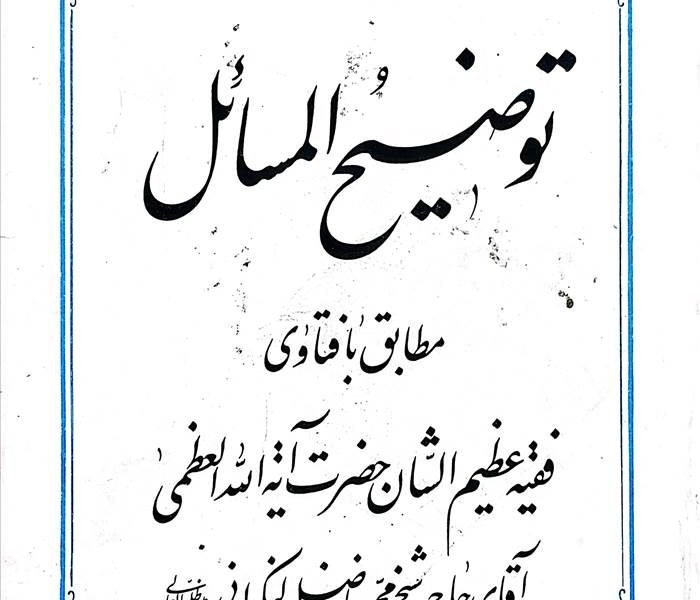 توضیح المسائل
مطابق با فتاوی
فقیه عظیم الشأن حضرت آیة الله العظمی
آقای حاج شیخ محمد فاضل لنکرانی